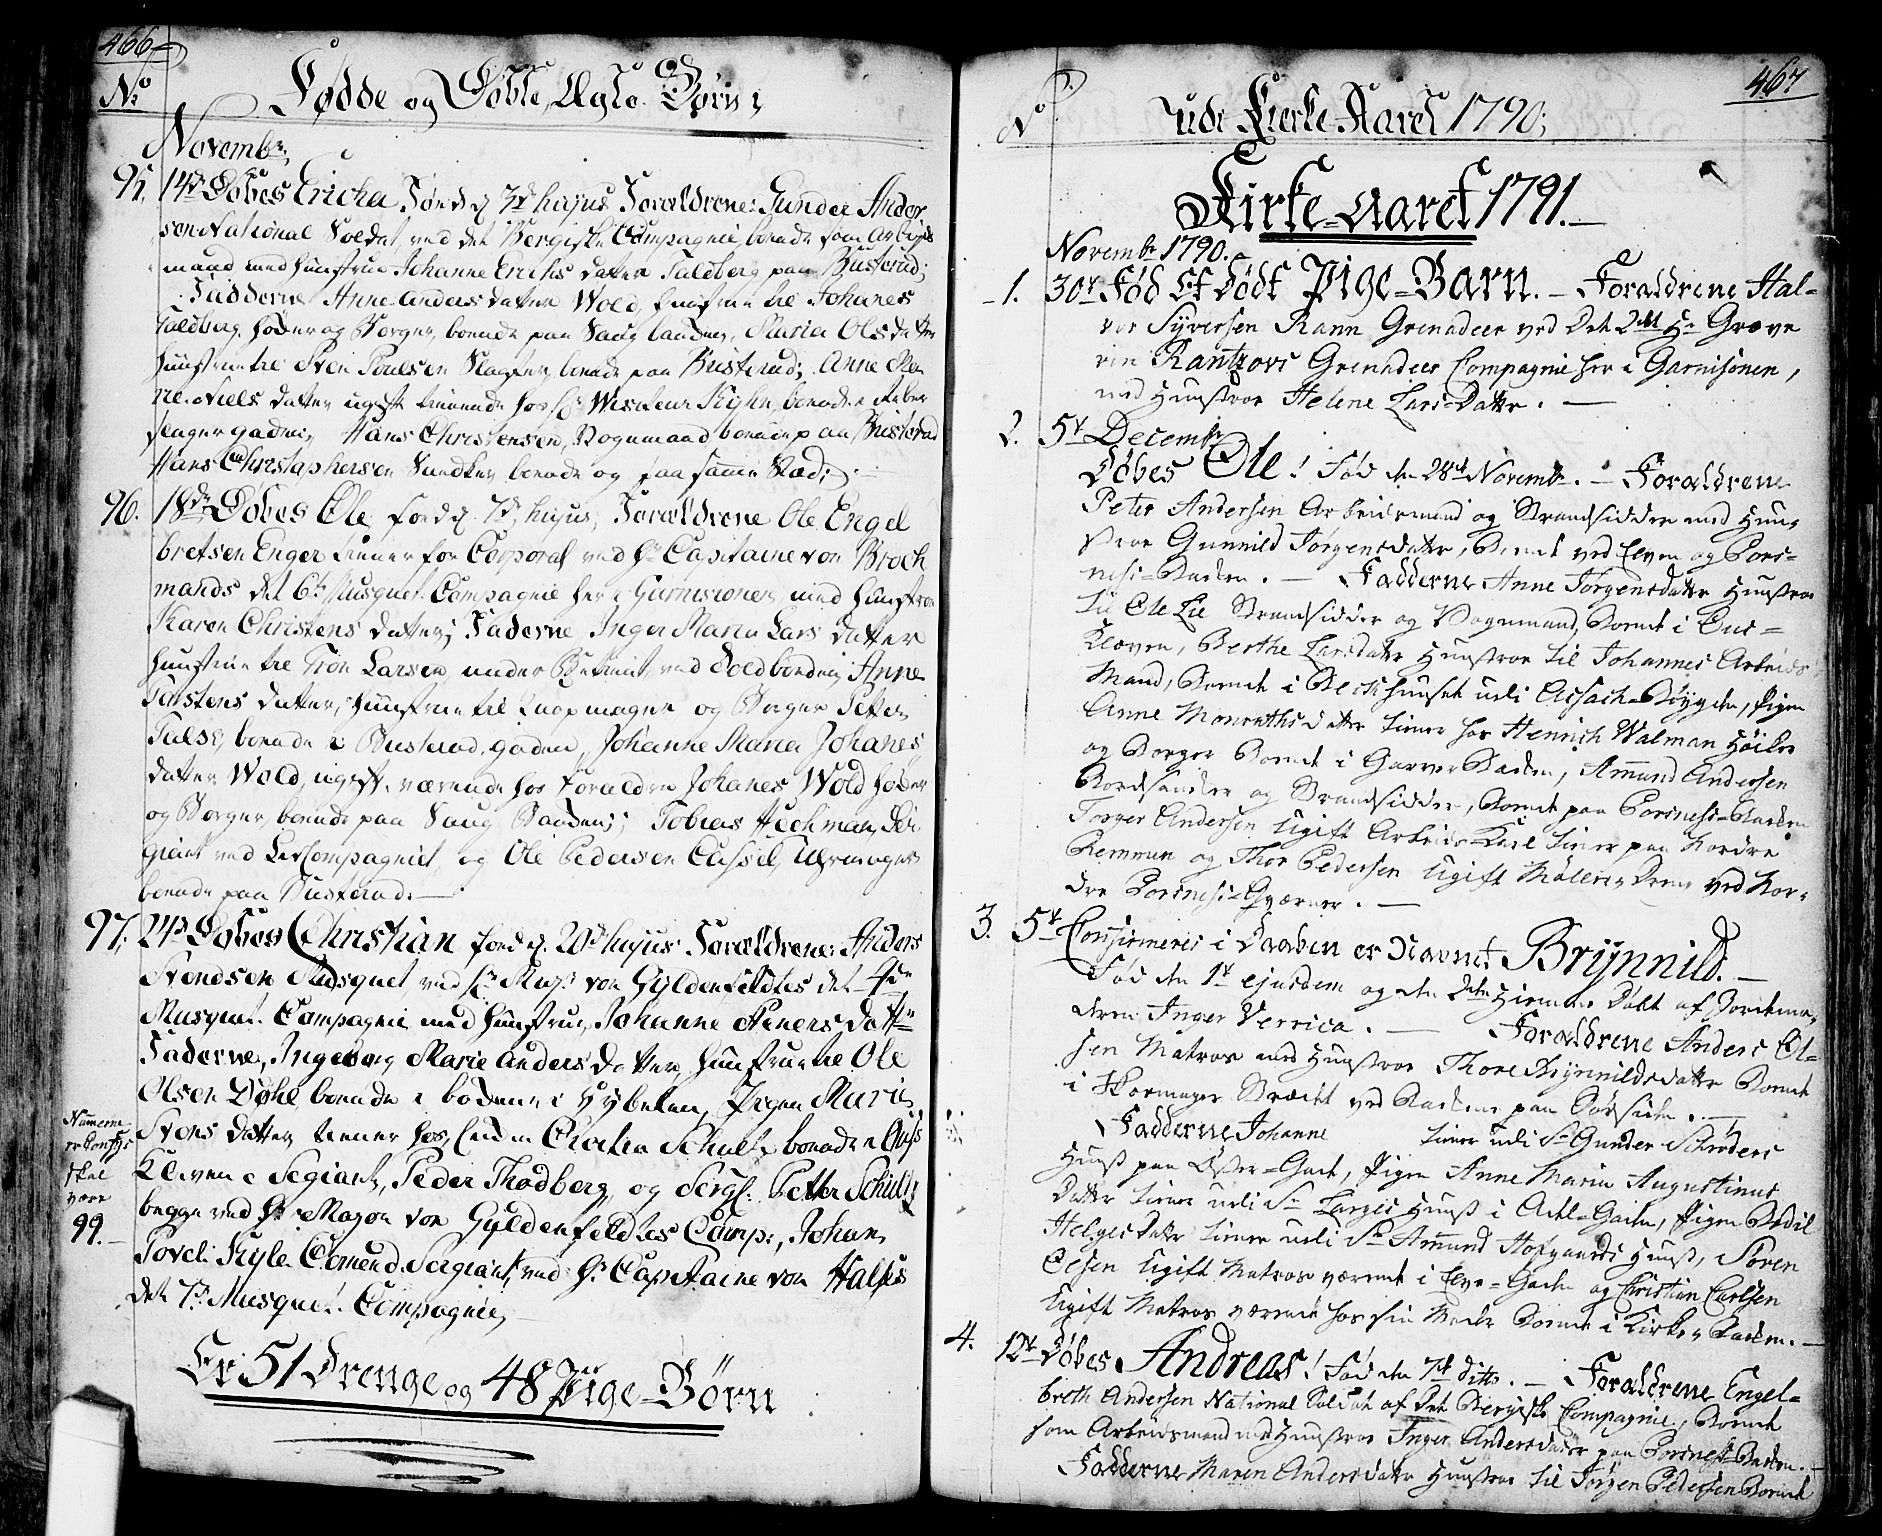 466
No
Födde og Döbte, Ægte Börn i
Novembr:
95. 14de Döbes Ericha Föed d. 7de hujus Forældrene: Gunder Ander-
sen National Soldat ved det Bergiske Compagnie, boende som Arbeyds
mand med Hustrue Johanne Erichs datter Faldberg paa Busterud;
Fadderne Anne Anders datter Wold, hustrue til Johanes
Faldberg, höcker og Borger, boende paa Saug banden, Maria Ols datter
hustrue til Sven Poulsen Slagter, boende paa Busterud; Anne Ma-
ne Niels datter ugift tienende hos Hr Visiteur Kyhn, boende i
gaden; Hans Christensen, Vognmand boende paa Busterud
Hans Christophersen Snedker boende og paa samme Stæd;
96. 18de Döbes Ole, föed d. 7de hujus, Forældrene Ole Engel
bretsen Enger tienner for Corporal ved Hr Capitaine von Brock
mands det 6te Musquet. Compagnie her i Garnisonen, med hustrue
Karen Christens datter; Faderne Inger Maria Lars datter
hustrue til Tron Larsen, under Betient ved Toldboden; Anne
Torstens datter, hustrue til Knapmager og Borger Petter
Tulse, boende i Busterud gaden, Johanne Maria Johanes
datter Wold, ugift, værende hos Forældre Johanes Wold höcker
og Borger, boende paa Saug Banden; Tobias Heckman, Ser-
giant ved Liv Compagniet, og Ole Pedersen Cassel, Uhrmager
boende paa Busterud.
97. 24de Döbes Christian föed d. 20de hujus Forældrene: Anders
Svendsen Musquet ved Hr Maj: von Gyldenfeldtes det 4de
Musquet. Compagnie med hustrue, Johanne Steners datter
Faderne, Ingeborg Marie Anders datter, hustrue til Ole
Olsen Döhl boende i boderne i Hybelen, Pigen Marie
Svens datter tienner hos Enken Schultz boende i Aass
Kleven Segiant, Peder Thodberg, og Serg: Petter Schultz
begge ved Hr Major von Gyldenfeldtes Comp:, Johan
Povel Kyle Comend. Sergiant, ved Hr Capitaine von Halses
det 7de Musquet. Compagnie,
Numerne
skal
være
99.
Er 51 Drenge og 48 Pige-Börn
467
No
udi Kierke-Aaret 1790;
Kirke-Aaret 1791.
Novembr 1790.
1. 30te Föd Et Dödt Pige-Barn. Forældrene Hal-
vor Syversen Rann Grenadeer ved Det 2det Hr Greve
von Rantzovs Grenadeer Compagnie her i Garnisonen,
med Hustroe Helene Lars-Datter.
2. 5te Decembr
Döbes Ole! Föd den 28de Novembr. Forældrene
Peter Andersen Arbeidsmand og Strandsidder med Hu-
stroe Gunnild Jörgensdatter, Boende ved Elven og Pors-
nesi-Bakken. Fadderne Anne Jörgensdatter Hustroe
til Ole Lie Strandsidder og Vognmand, Boende i Aas-
Kloven, Berthe Larsdatter Hustroe til Johannes Arbeids
Mand, Boende i Berchhuuset udi Aasach-Böygden, Pigen
Anne Monrathsdatter tiener hos Henrich Walman Höiker
og Borger Boende i Garver Bakken, Amund Andersen
Bordhandler og Strandsidder, Boende paa Porsnesi-Bakken
Torger Andersen Ugift Arbeids-Karl tiener paa Nordre
Remmen og Thor Pedersen Ugift Möller-Dreng ved Nor-
dre Porsnesi-Qværner.
3. 5te Confirmeris i Daaben er Navnet Brynnild.
Föd den 1te ejusdem og den 2den Hiemme Döbt af Jordemo-
deren Inger Verrica. Forældrene Anders Ol-
sen Matros med Hustroe Thore Brynnildsdatter Boende
i Skomager Strædet ved Bakkene paa Sörsiden.
Fadderne Johanne tiener udi Sr Gunder Schröders
Huus paa Öster-Gade, Pigen Anne Maria Augustinus
Datter tiener udi Sr Larges Huus i Adel-Gaden, Pigen Bodil
Helgesdatter tiener udi Sr Amund Hofgaards Huus, Sören
Olsen Ugift Matros værende i Elve-Gaden og Christian Carlsen
Ugift Matros værende hos sin Moder Boende i Kirke-Bakken.
4. 12te Döbes Andreas! Föd den 7de ditto. Forældrene Engel-
breth Andersen National Soldat af Det Bergiske Compagnie, Boende
som Arbeidsmand med Hustroe Inger Andersdatter paa Porsnesi-Bakken.
Fadderne Maren Andersdatter Hustroe til Jörgen Pedersen Boende